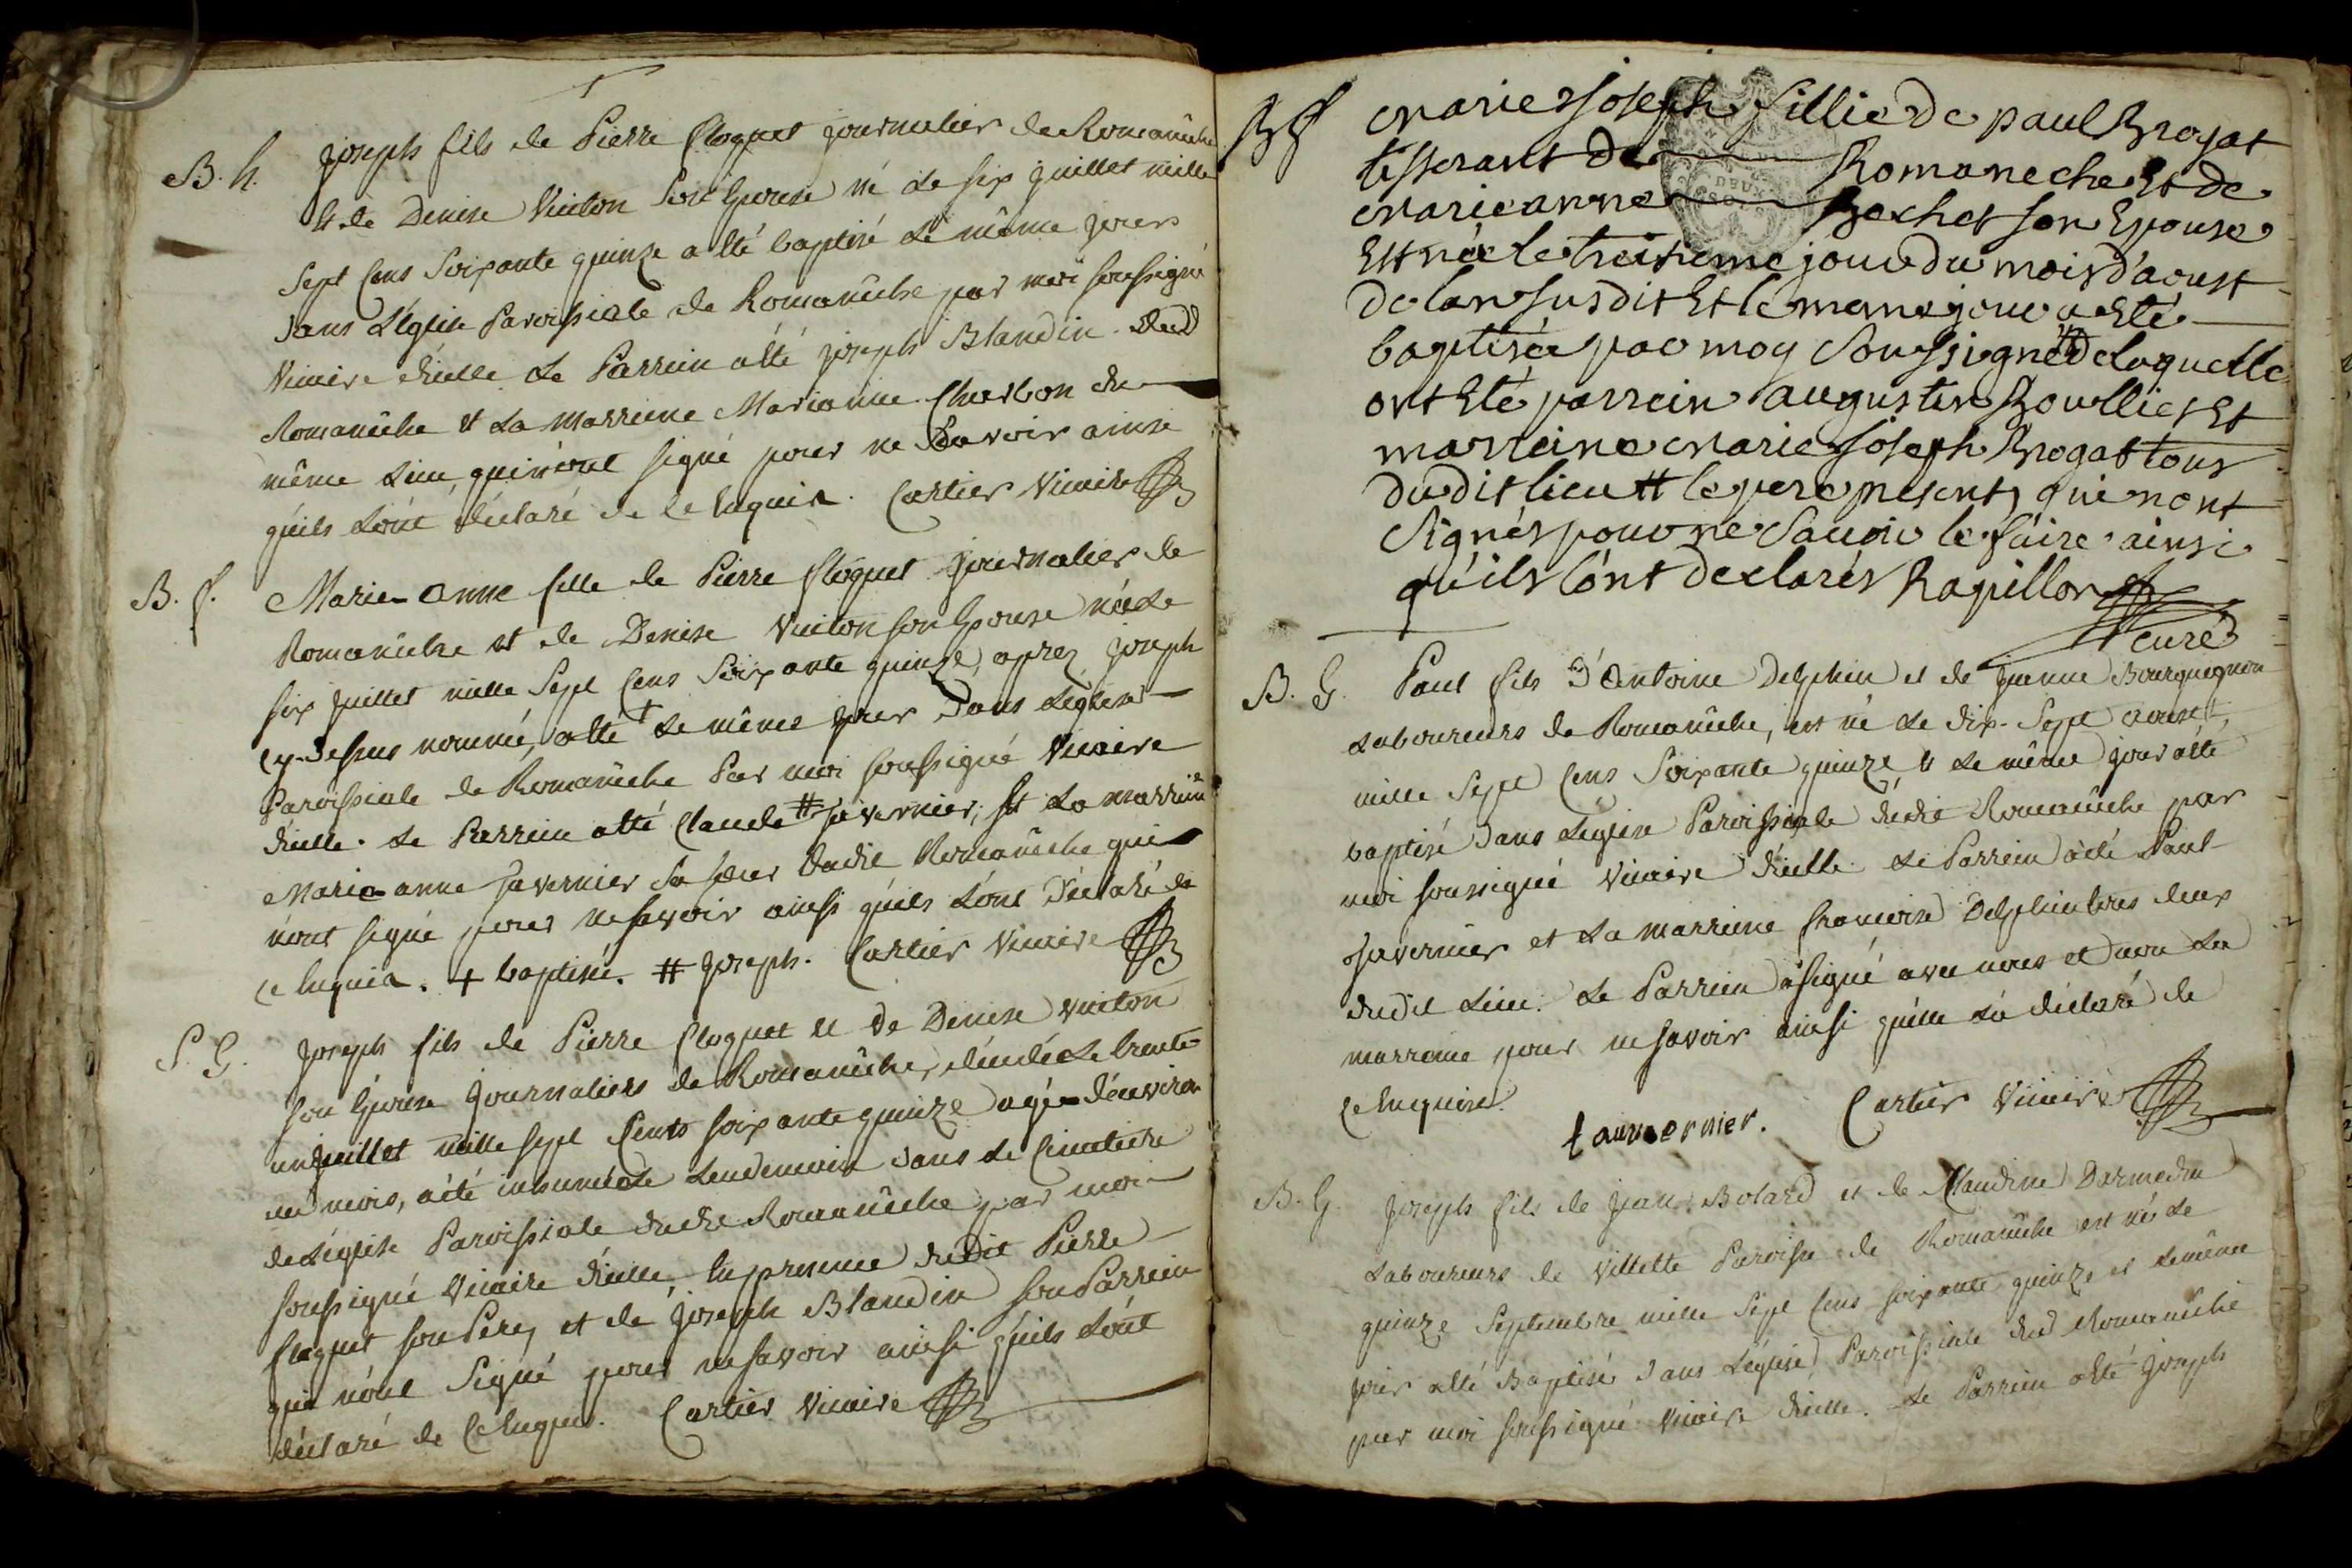 B. h. Joseph fils de Pierre Floquet journalier de Romanêche
et de Denise Vuiton son Epouse né le six juillet mille
sept cens soixante quinze a été baptisé le même jour
dans L'église Paroissiale de Romanêche par moi soussigné
Vicaire d'icelle. Le Parrein a été joseph Blandin dud
Romanêche et La Marreine Marianne Charbon du
même Lieu, qui n'ont signé pour ne Savoir ainsi
qu'ils L'ont déclaré de ce Enquis. Cartier Vicaire
B. f. Marie-anne fille de Pierre floquet journalier de
Romanêche et de Denise Vuiton son Epouse née Le
six juillet mille Sept cens Soixante quinze, aprez joseph
cy-dessus nommé, a été + Le même jour dans L'église
Paroissiale de Romanêche Par moi soussigné Vicaire
d'icelle. Le Parrein a été Claude # Tavernier, et La marreine
Marie-anne Tavernier sa sœur dudit Romanêche qui
n'ont signé pour ne savoir ainsi qu'ils L'ont déclaré de
ce Enquis. + baptisée. # joseph. Cartier Vicaire
S. G. joseph fils de Pierre floquet et de Denise Vuiton
son Epouse journaliers de Romanêche, décédé Le trente
un juillet mille sept Cents soixante quinze agé d'environ
un mois, a été inhumé Le Lendemain dans Le Cimetiere
de L'église Paroissiale dudit Romanêche par moi
soussigné Vicaire d'icelle, En presence dudit Pierre
floquet son Pere, et de joseph Blandin son Parrein
qui n'ont Signé pour ne savoir ainsi qu'ils L'ont
déclaré de ce Enquis. Cartier Vicaire
Bf marie joseph fillie de paul Brogat
tisserant de Romaneche Et de
marieanne Bochet son Epouse
Est née le treisieme jour du mois d'aoust
de lan susdit Et le meme jour a Eté
baptisée par moy Soussigné de laquelle
ont Eté parrein augustin Roullier Et
marreine marie joseph Brogat tous
du dit lieu tt le pere present, qui nont
Signés pour ne Sauoir le faire ainsi
qu'ils l'ont declarés Rapillon
curé
B. G. Paul fils d'Antoine Delphin et de jeanne Bourguignon
Laboureurs de Romanêche, est né Le dix-Sept aoust
mille Sept Cens Soixante quinze et Le même jour a été
baptisé dans L'église Paroissiale dudit Romanêche par
moi soussigné Vicaire d'icelle. Le Parrein a été Paul
Tavernier et La marreine francoise Delphin tous deux
dudit Lieu. Le Parrein a signé avec nous et non La
marreine pour ne savoir ainsi qu'elle L'a déclaré de
ce Enquise.
tauvernier. Cartier Vicaire
B. G. joseph fils de jean Bolard et de Claudine Darmedin
Laboureurs de Villette Paroisse de Romanêche est né Le
quinze Septembre mille Sept Cens soixante quinze et Le même
jour a été Baptisé dans L'église Paroissiale dud Romanêche
par moi soussigné Vicaire d'icelle. Le Parrein a été joseph